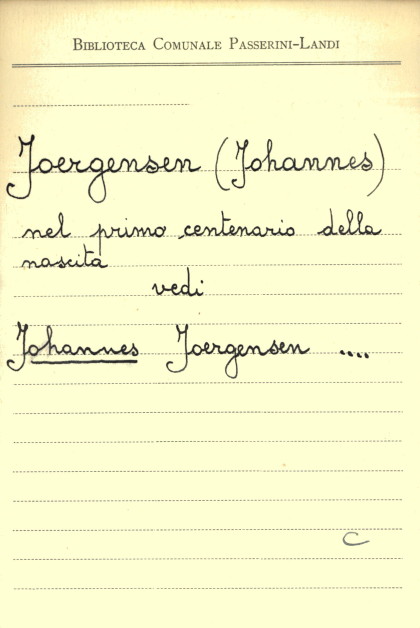 BIBLIOTECA COMUNALE PASSERINI-LANDI
Joergensen (Johannes)
nel primo centenario della
nascita
vedi
Johannes Joergensen ....
C